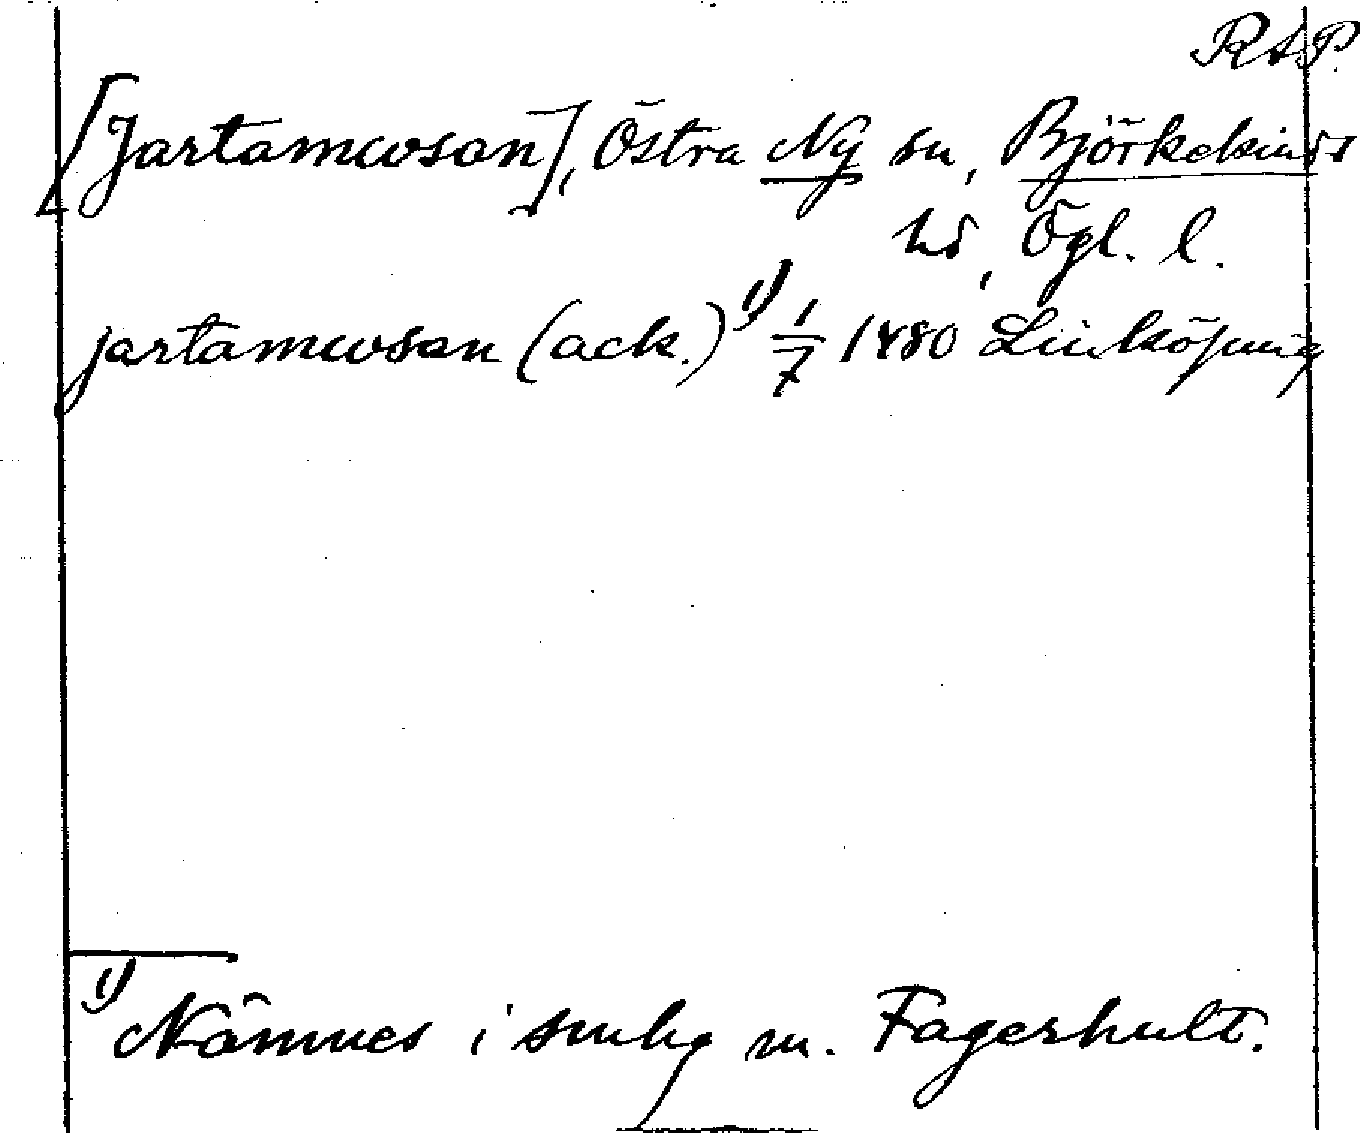 RAP.
[Jartamwsan], Östra Ny sn, Björkekinds
hd, Ögl. l.
jartamwsan (ack.) 1) 1/7 1480 Linköping
1) Nämnes i smhg m. Fagerhult.